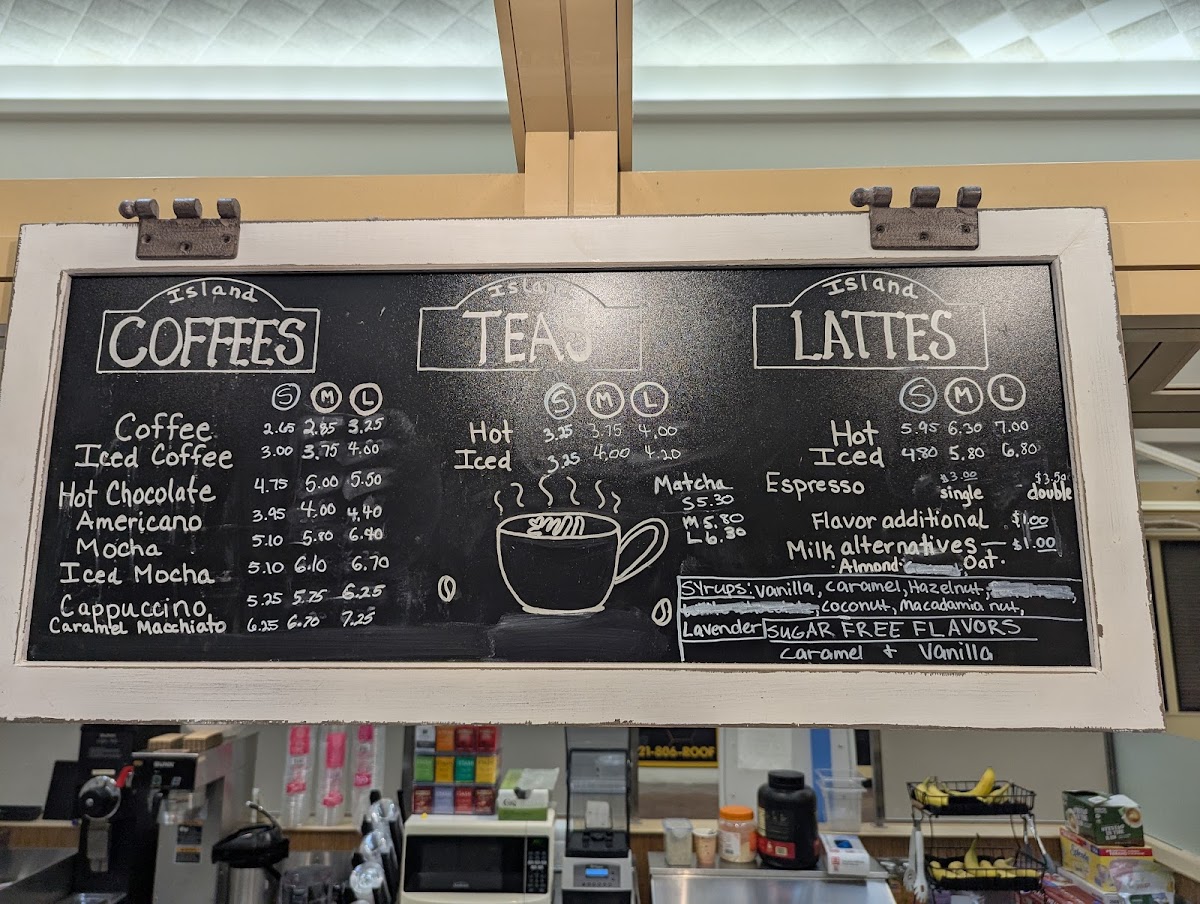 Island
COFFEES
S M L
Coffee 2.65 2.85 3.25
Iced Coffee 3.00 3.75 4.00
Hot Chocolate 4.75 5.00 5.50
Americano 3.95 4.00 4.40
Mocha 5.10 5.80 6.40
Iced Mocha 5.10 6.10 6.70
Cappuccino 5.25 5.75 6.25
Caramel Macchiato 6.25 6.70 7.25
Island
TEAS
S M L
Hot 3.25 3.75 4.00
Iced 3.25 4.00 4.20
Matcha
S 5.30
M 5.80
L 6.30
Island
LATTES
S M L
Hot 5.95 6.30 7.00
Iced 4.80 5.80 6.80
Espresso $3.00 single $3.50 double
Flavor additional $1.00
Milk alternatives — $1.00
Almond, Oat.
Syrups: Vanilla, Caramel, Hazelnut,
Coconut, Macadamia nut,
Lavender SUGAR FREE FLAVORS
Caramel + Vanilla
21-806-ROOF
BUNN